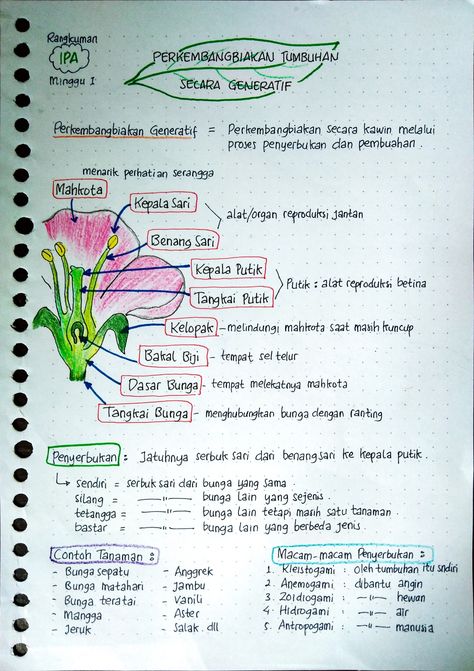 Rangkuman
IPA
Minggu I
PERKEMBANGBIAKAN TUMBUHAN
SECARA GENERATIF
Perkembangbiakan Generatif = Perkembangbiakan secara kawin melalui
proses penyerbukan dan pembuahan.
menarik perhatian serangga
Mahkota
Kepala Sari
alat/organ reproduksi jantan
Benang Sari
Kepala Putik
Putik : alat reproduksi betina
Tangkai Putik
Kelopak - melindungi mahkota saat masih kuncup
Bakal Biji - tempat sel telur
Dasar Bunga - tempat melekatnya mahkota
Tangkai Bunga - menghubungkan bunga dengan ranting
Penyerbukan : Jatuhnya serbuk sari dari benangsari ke kepala putik.
↳ sendiri = serbuk sari dari bunga yang sama.
silang = —"— bunga lain yang sejenis.
tetangga = —"— bunga lain tetapi masih satu tanaman.
bastar = —"— bunga lain yang berbeda jenis.
Contoh Tanaman :
- Bunga sepatu - Anggrek
- Bunga matahari - Jambu
- Bunga teratai - Vanili
- Mangga - Aster
- Jeruk - Salak. dll
Macam-macam Penyerbukan :
1. Kleistogami : oleh tumbuhan itu sndiri
2. Anemogami : dibantu angin
3. Zoidiogami : —"— hewan
4. Hidrogami : —"— air
5. Antropogami : —"— manusia